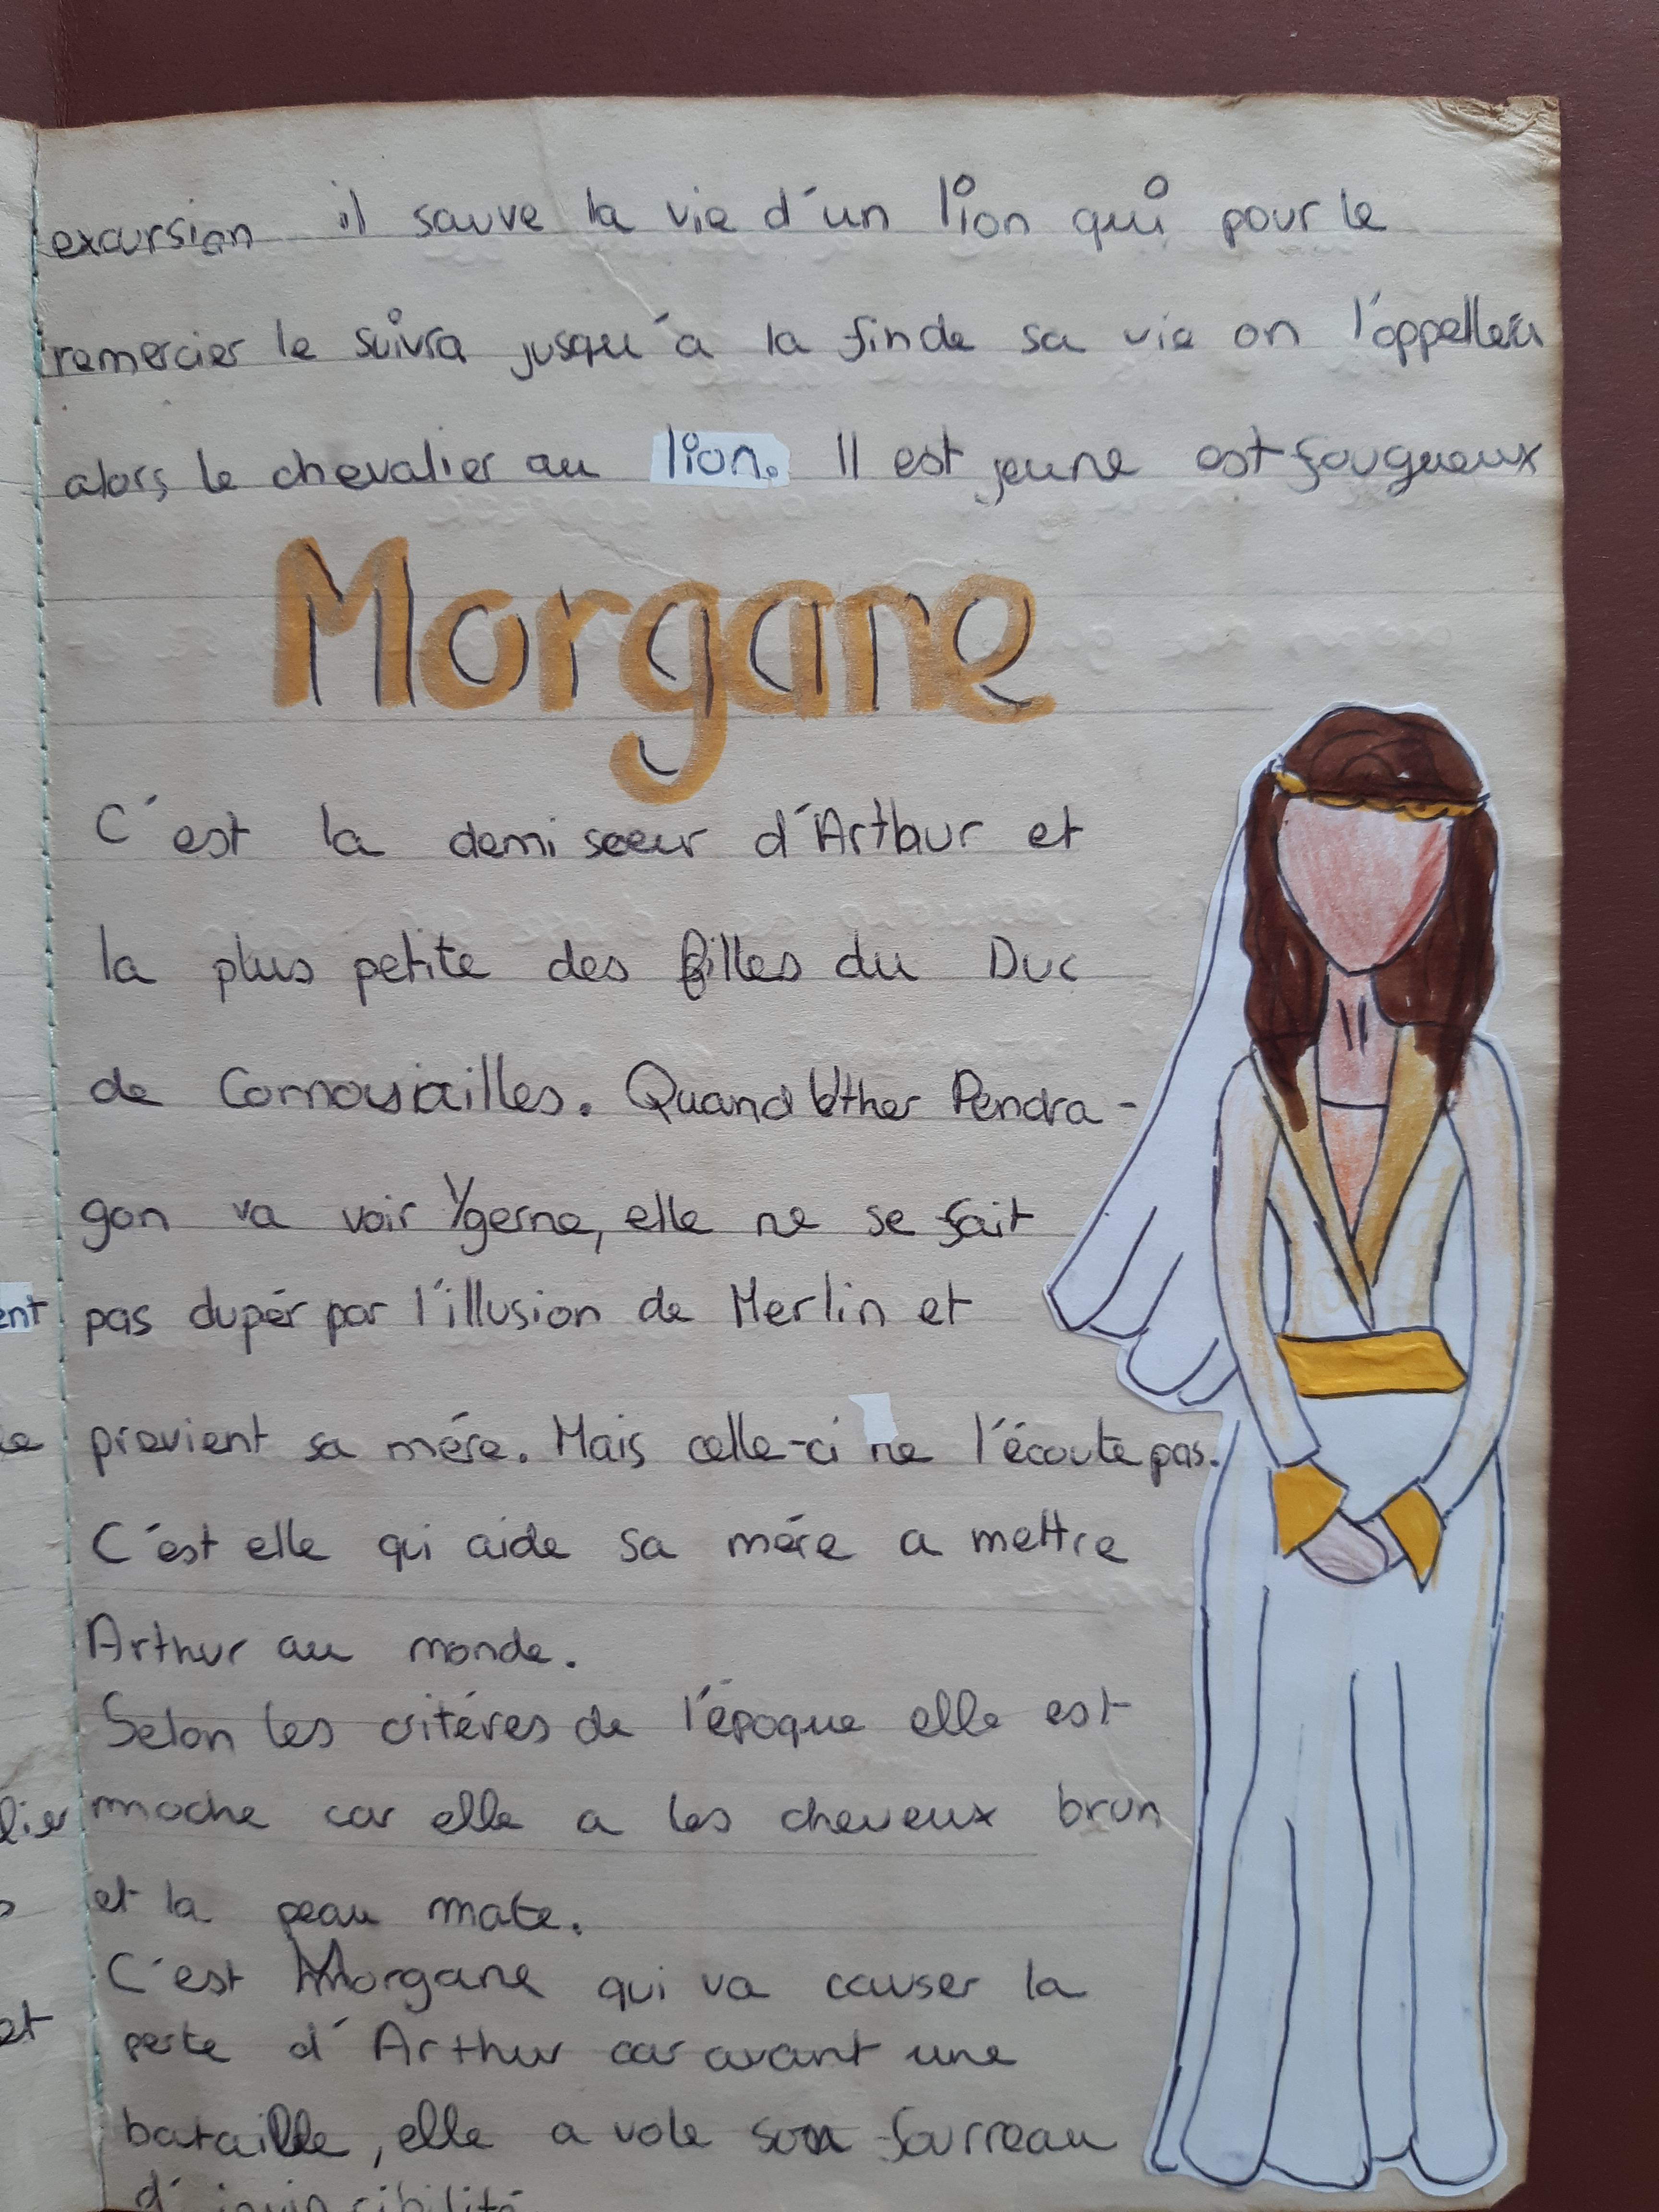 excursion il sauve la vie d'un lion qui pour le
remercier le suivra jusqu'à la fin de sa vie on l'appellera
alors le chevalier au lion. Il est jeune est fougueux
Morgane
C'est la demi soeur d'Arthur et
la plus petite des filles du Duc
de Cornouailles. Quand Uther Pendra-
gon va voir Ygerne, elle ne se fait
pas dupér par l'illusion de Merlin et
ent
prévient sa mére. Mais celle-ci ne l'écoute pas.
C'est elle qui aide sa mére a mettre
Arthur au monde.
Selon les critéres de l'époque elle est
moche car elle a les cheveux brun
et la peau mate.
C'est Morgane qui va causer la
et
perte d'Arthur car avant une
bataille, elle a volé son fourreau
d'invincibilité